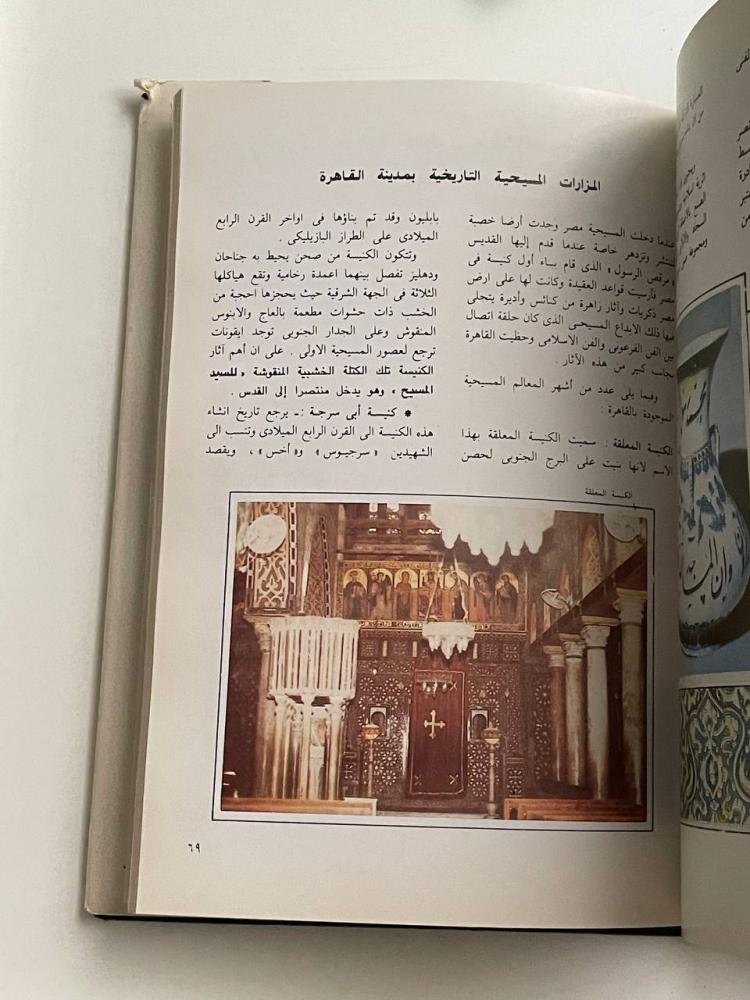 المزارات المسيحية التاريخية بمدينة القاهرة
عندما دخلت المسيحية مصر وجدت أرضا خصبة
لتنتشر وتزدهر خاصة عندما قدم إليها القديس
« مرقص الرسول » الذى قام ببناء أول كنيسة فى
مصر فأرسيت قواعد العقيدة وكانت لها على ارض
مصر ذكريات وآثار زاهرة من كنائس وأديرة يتجلى
فيها ذلك الابداع المسيحى الذى كان حلقة اتصال
بين الفن الفرعونى والفن الاسلامى وحظيت القاهرة
بجانب كبير من هذه الآثار .
وفيما يلى عدد من أشهر المعالم المسيحية
الموجودة بالقاهرة :
الكنيسة المعلقة : سميت الكنيسة المعلقة بهذا
الاسم لانها بنيت على البرج الجنوبى لحصن
بابليون وقد تم بناؤها فى اواخر القرن الرابع
الميلادى على الطراز البازيليكى .
وتتكون الكنيسة من صحن يحيط به جناحان
ودهليز تفصل بينهما اعمدة رخامية وتقع هياكلها
الثلاثة فى الجهة الشرقية حيث يحجزها احجبة من
الخشب ذات حشوات مطعمة بالعاج والابنوس
المنقوش وعلى الجدار الجنوبى توجد ايقونات
ترجع لعصور المسيحية الاولى . على ان أهم آثار
الكنيسة تلك الكتلة الخشبية المنقوشة « للسيد
المسيح » وهو يدخل منتصرا إلى القدس .
* كنيسة أبى سرجة :ـ يرجع تاريخ انشاء
هذه الكنيسة الى القرن الرابع الميلادى وتنسب الى
الشهيدين « سرجيوس » و« أخس » ، ويقصد
الكنيسة المعلقة
٦٩